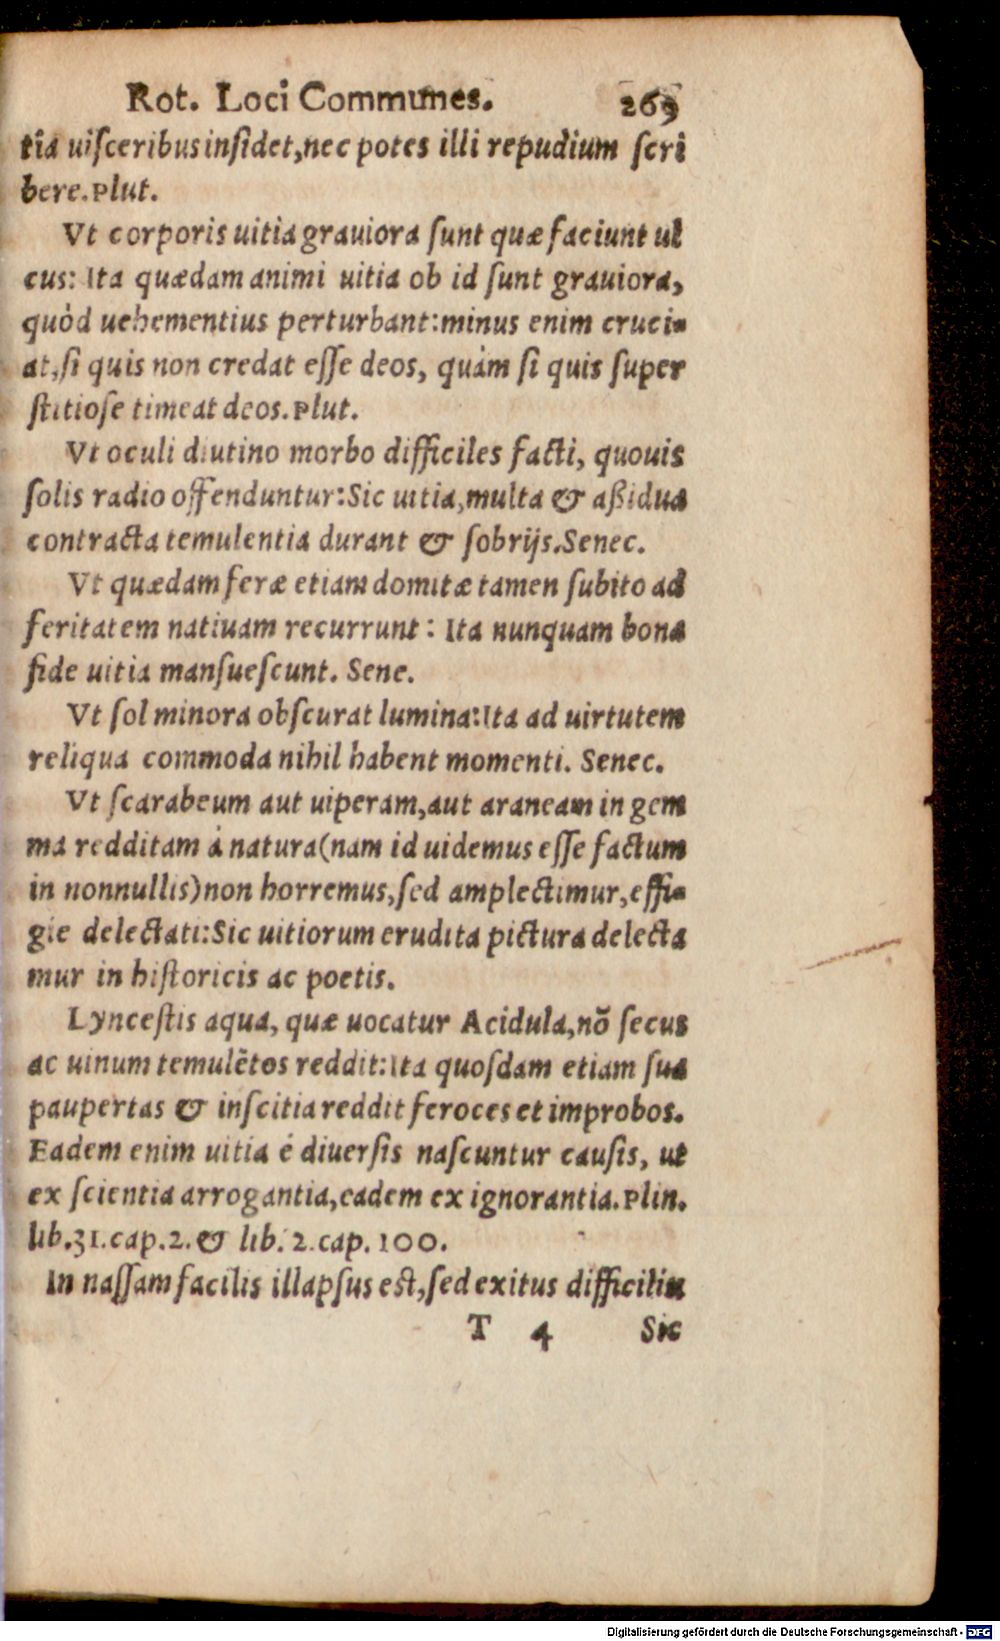 Rot. Loci Communes. 269
tia uiſceribus inſidet, nec potes illi repudium ſcri
bere. Plut.
Vt corporis uitia grauiora ſunt quæ faciunt ul
cus: Ita quædam animi uitia ob id ſunt grauiora,
quòd uehementius perturbant: minus enim cruci-
at, ſi quis non credat eſſe deos, quàm ſi quis ſuper
ſtitioſe timeat deos. Plut.
Vt oculi diutino morbo difficiles facti, quouis
ſolis radio offenduntur: Sic uitia, multa & aßidua
contracta temulentia durant & ſobrijs. Senec.
Vt quædam feræ etiam domitæ tamen ſubito ad
feritatem natiuam recurrunt: Ita nunquam bona
fide uitia manſueſcunt. Sene.
Vt ſol minora obſcurat lumina: Ita ad uirtutem
reliqua commoda nihil habent momenti. Senec.
Vt ſcarabeum aut uiperam, aut araneam in gem
ma redditam à natura (nam id uidemus eſſe factum
in nonnullis) non horremus, ſed amplectimur, effi-
gie delectati: Sic uitiorum erudita pictura delecta
mur in hiſtoricis ac poetis.
Lynceſtis aqua, quæ uocatur Acidula, nõ ſecus
ac uinum temulẽtos reddit: Ita quoſdam etiam ſua
paupertas & inſcitia reddit feroces et improbos.
Eadem enim uitia è diuerſis naſcuntur cauſis, ut
ex ſcientia arrogantia, eadem ex ignorantia. Plin.
lib. 31. cap. 2. & lib. 2. cap. 100.
In naſſam facilis illapſus eſt, ſed exitus difficilis
T 4 Sic
Digitalisierung gefördert durch die Deutsche Forschungsgemeinschaft - DFG